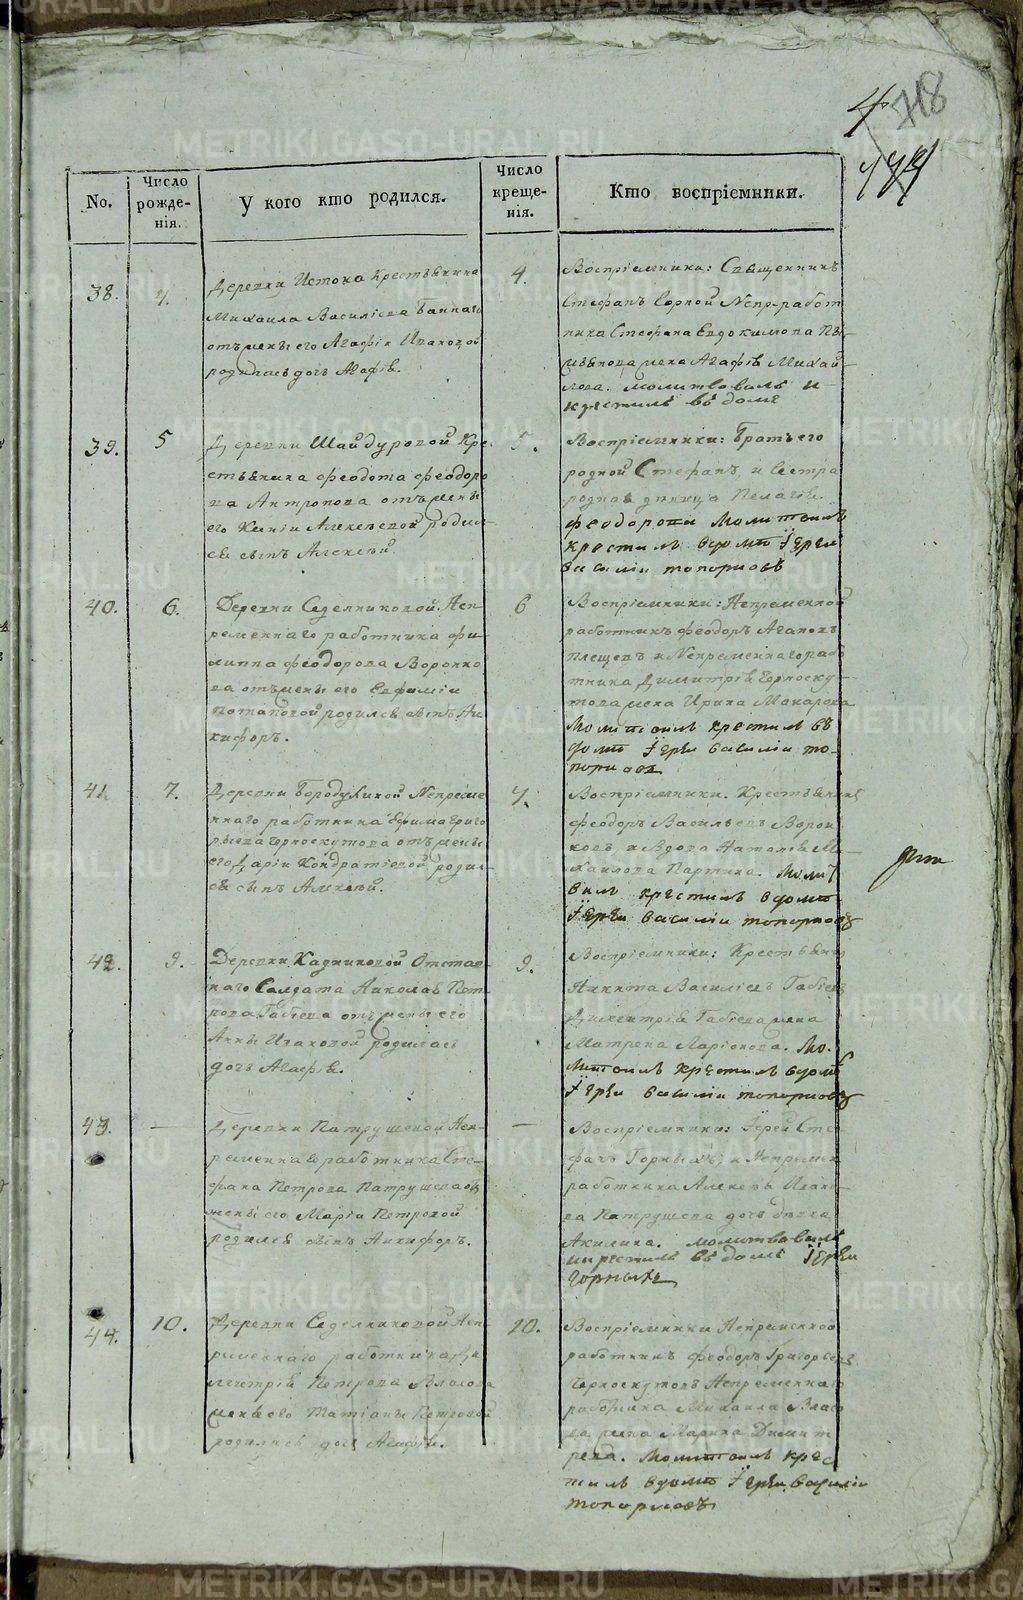 718
No.
Число рожде-нія.
У кого кто родился.
Число креще-нія.
Кто воспріемники.
38.
4.
Деревни Истока Крестьянина
Михаила Василіева Баннаго
отъ жены его Агафіи Ивановой
родилась дочь Агафія.
4.
Воспріемники: Священникъ
Стефанъ Горной Непр. работ
ника Стефана Евдокимова
жена Агафія Михай-
лова. молитвовалъ и
крестилъ въ домѣ
39.
5
Деревни Шайдуровой Кре
стьянина Феодота Феодоро
ва Антропова отъ жены
его Ксеніи Алексеевой родил-
ся сынъ Алексей
5.
Воспріемники: Братъ его
родной Стефанъ и Сестра
родная девица Пелагія
Феодоровы Молитвилъ
крестилъ вдомѣ Іерей
василіи топорковъ
40.
6.
Деревни Седелниковой Неп
ременнаго работника Фи
липпа Феодорова Воронко
ва отъ жены его Евфиміи
Потаповой родился сынъ Ни
кифоръ.
6
Воспріемники: Непременной
работникъ Феодоръ Агаповъ
Плещевъ и Непременнаго рабо
тника Димитрія Черноску
това жена Ирина Макарова
Молитвилъ крестилъ въ
домѣ Іерей василіи то-
порковъ
41.
7.
Деревни Бородулиной Непреме
ннаго работника Ефима Григо
рьева Черноскутова отъ жены
его Даріи Кондратіевой родил
ся сынъ Алексей.
7.
Воспріемники. Крестьянинъ
Феодоръ Васильевъ Ворон
ковъ и вдова Наталія Ми
хаилова Партина. Моли
вилъ крестилъ вдомѣ
Іерей василіи топорковъ
42.
9.
Деревни Кадниковой Отстав
наго Салдата Николая Пет
рова Габіева отъ жены его
Анны Ивановой родилась
дочь Агафія.
9.
Воспріемники: Крестьянинъ
Никита Василіевъ Габіевъ
Димитрія Габіева жена
Матрена Ларіонова. Мо-
литвилъ крестилъ вдомѣ
Іерей василіи топорковъ
43.
—
Деревни Патрушевой Неп-
ременнаго работника Сте-
фана Петрова Патрушева отъ
жены его Маріи Петровой
родился сынъ Никифоръ.
—
Воспріемники: Іерей Сте-
фанъ Горныхъ и Непремен
работника Алексея Ивано-
ва Патрушева дочь девка
Акилина. молитвовалъ
и крестилъ въ домѣ Іерей
Горныхъ
44.
10.
Деревни Седелниковой Неп-
ременнаго работника Ди
митрія Петрова Власова
жены его Татіаны Петровой
родилась дочь Агафія.
10.
Воспріемники Непременной
работникъ Феодоръ Григорьевъ
Черноскутовъ Непременнаго
работника Михаила Власо
ва жена Марина Димит
рева. Молитвилъ крес
тилъ вдомѣ Іерей Василіи
топорковъ
METRIKI.GASO-URAL.RU